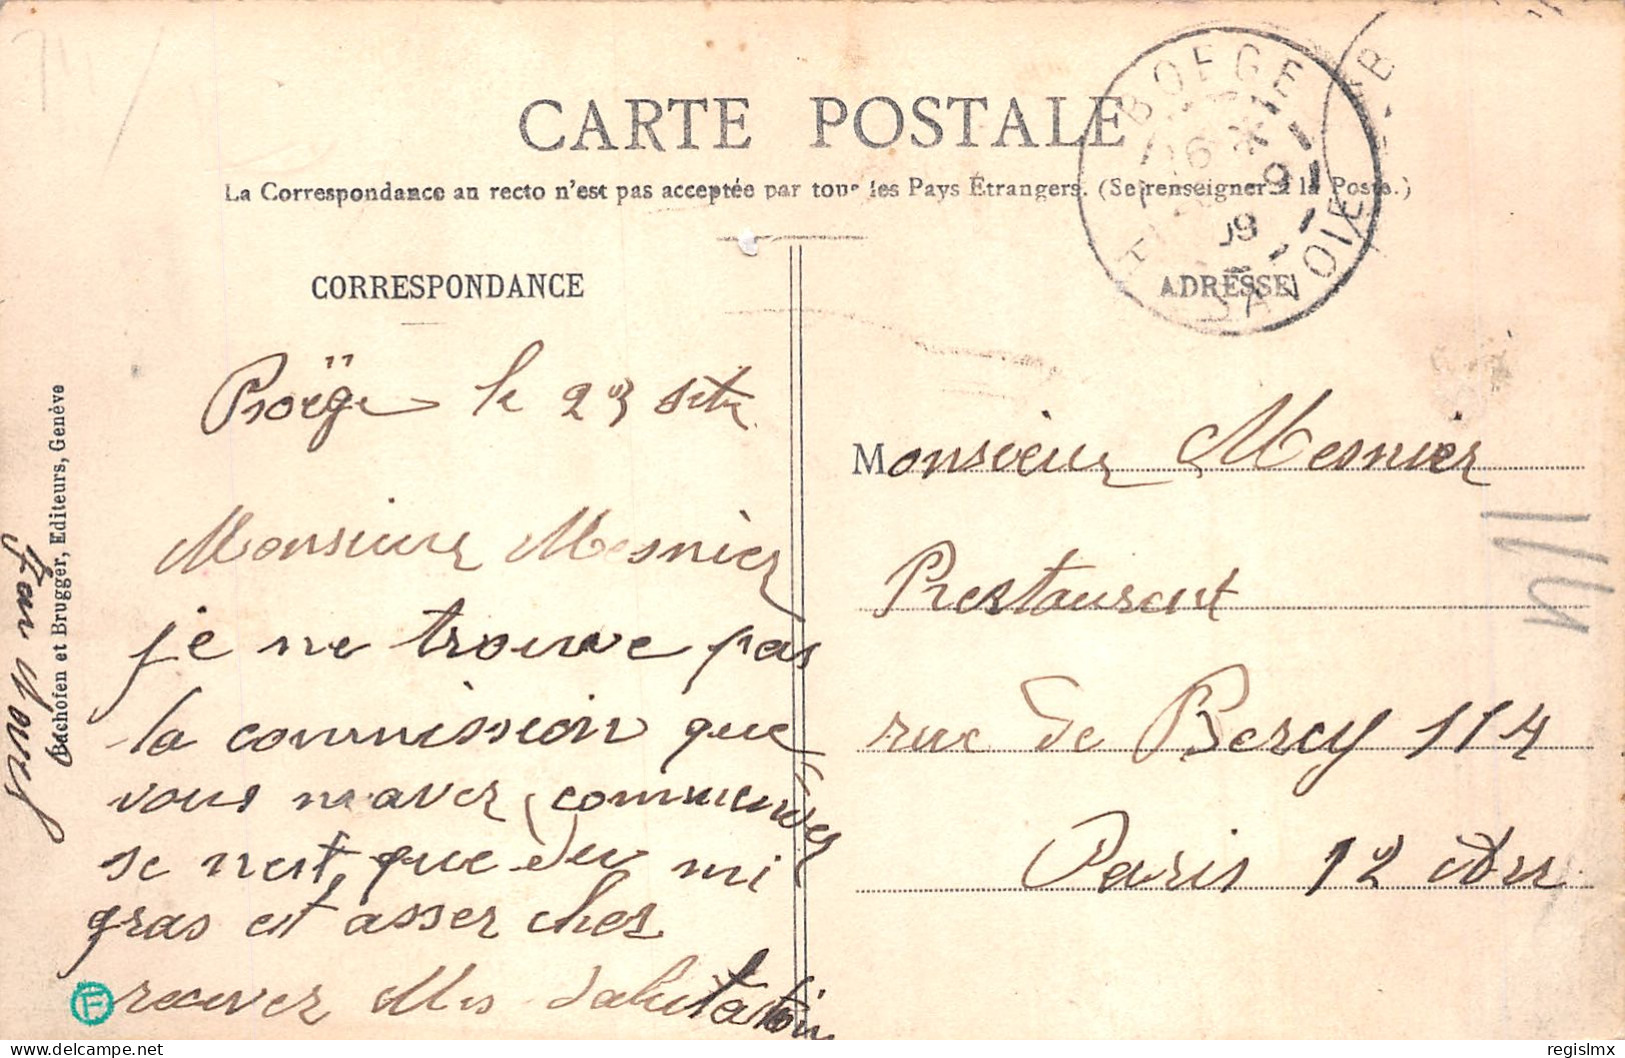 CARTE POSTALE
La Correspondance au recto n'est pas acceptée par tous les Pays Étrangers. (Se renseigner à la Poste.)
BOEGE
16
9
09
SAVOIE
CORRESPONDANCE
ADRESSE
Boëge le 23
Monsieur Mesnier
je ne trouve pas
la commission que
vous mavez commender
se nest, que du mi
gras et asser cher
recever Mes Salutation
Monsieur Mesnier
Restaurant
rue de Bercy 114
Paris 12 Arr
Bachofen et Brugger, Editeurs, Genève
F
regislmx
delcampe.net